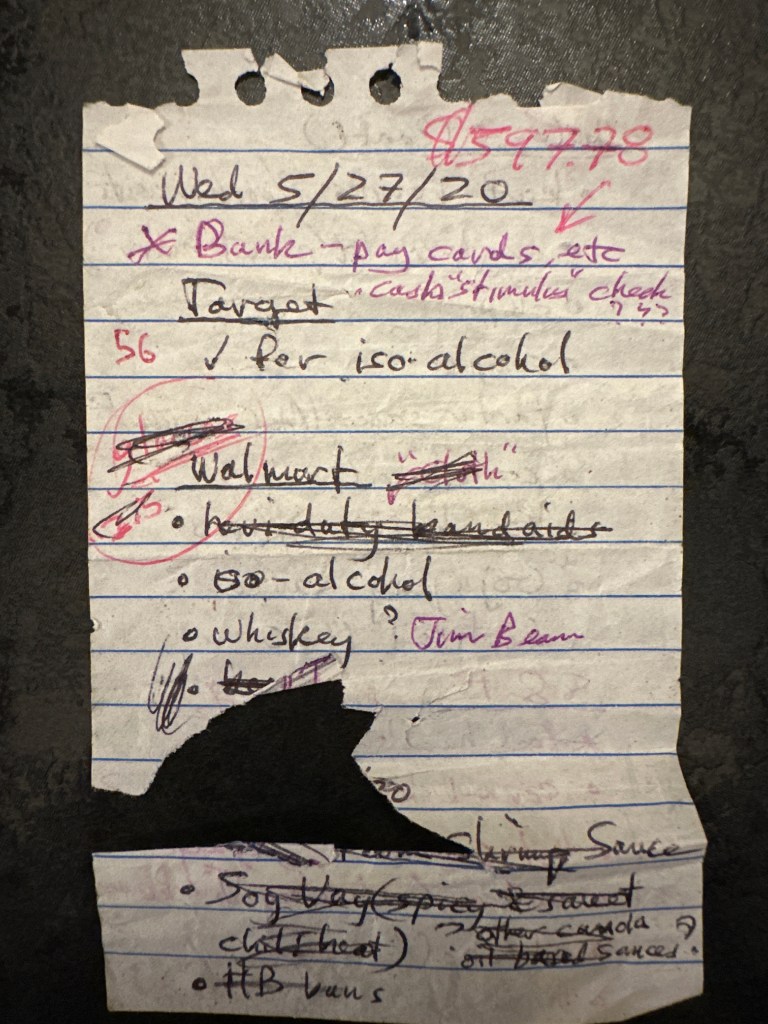 $597.78
Wed 5/27/20
* Bank - pay cards, etc
Target • cash "stimulus" check
???
56 ✓ for iso-alcohol
Walmart "cloth"
• hevi-duty bandaids
• iso-alcohol
• Whiskey ? Jim Beam
20
Shrimp Sauce
• Soy Vay (spicy & sweet
chili heat) other canola ?
oil based sauces.
• HB buns